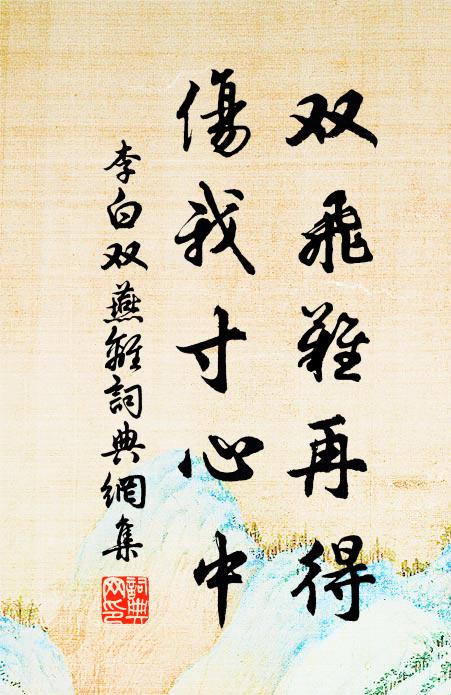 双飛難再得
傷我寸心中
李白双燕離詞典網集
詞典网印